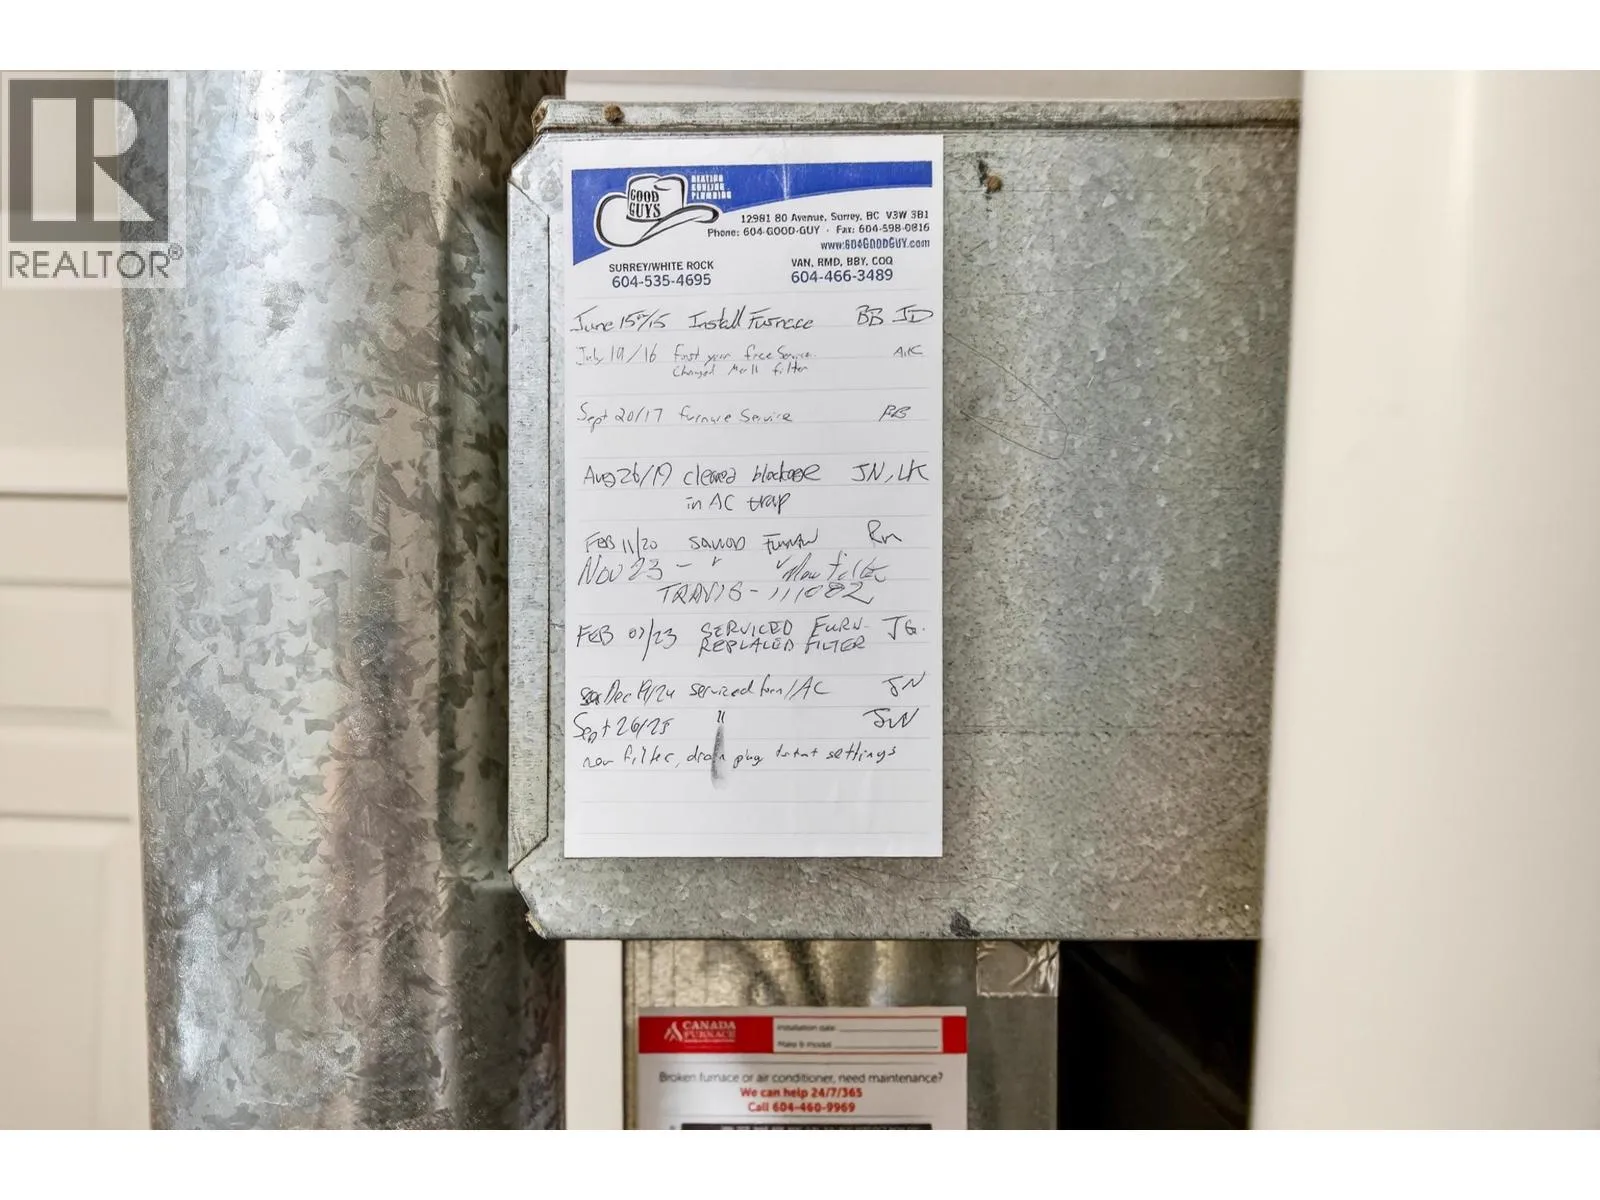 REALTOR®
GOOD GUYS
HEATING
COOLING
PLUMBING
12981 80 Avenue, Surrey, BC V3W 3B1
Phone: 604-GOOD-GUY · Fax: 604-598-0816
www.604GOODGUY.com
SURREY/WHITE ROCK
604-535-4695
VAN, RMD, BBY, COQ
604-466-3489
June 15th/15 Install Furnace BB JD
July 19/16 First year free Service
Changed Merll filter
Sept 20/17 furnace Service BB
Aug 26/19 cleared blockage JN, LK
in AC trap
FEB 11/20
Nov 23 - New filter
TRAVIS - 111082
FEB 07/23 SERVICED FURN- JG.
REPLACED FILTER
Dec 19/24 serviced furn/AC JN
Sept 26/25 " JN
new filter, drain plug tstat settings
CANADA
FURNACE
Installation date
Make & model
Broken furnace or air conditioner, need maintenance?
We can help 24/7/365
Call 604-460-9969